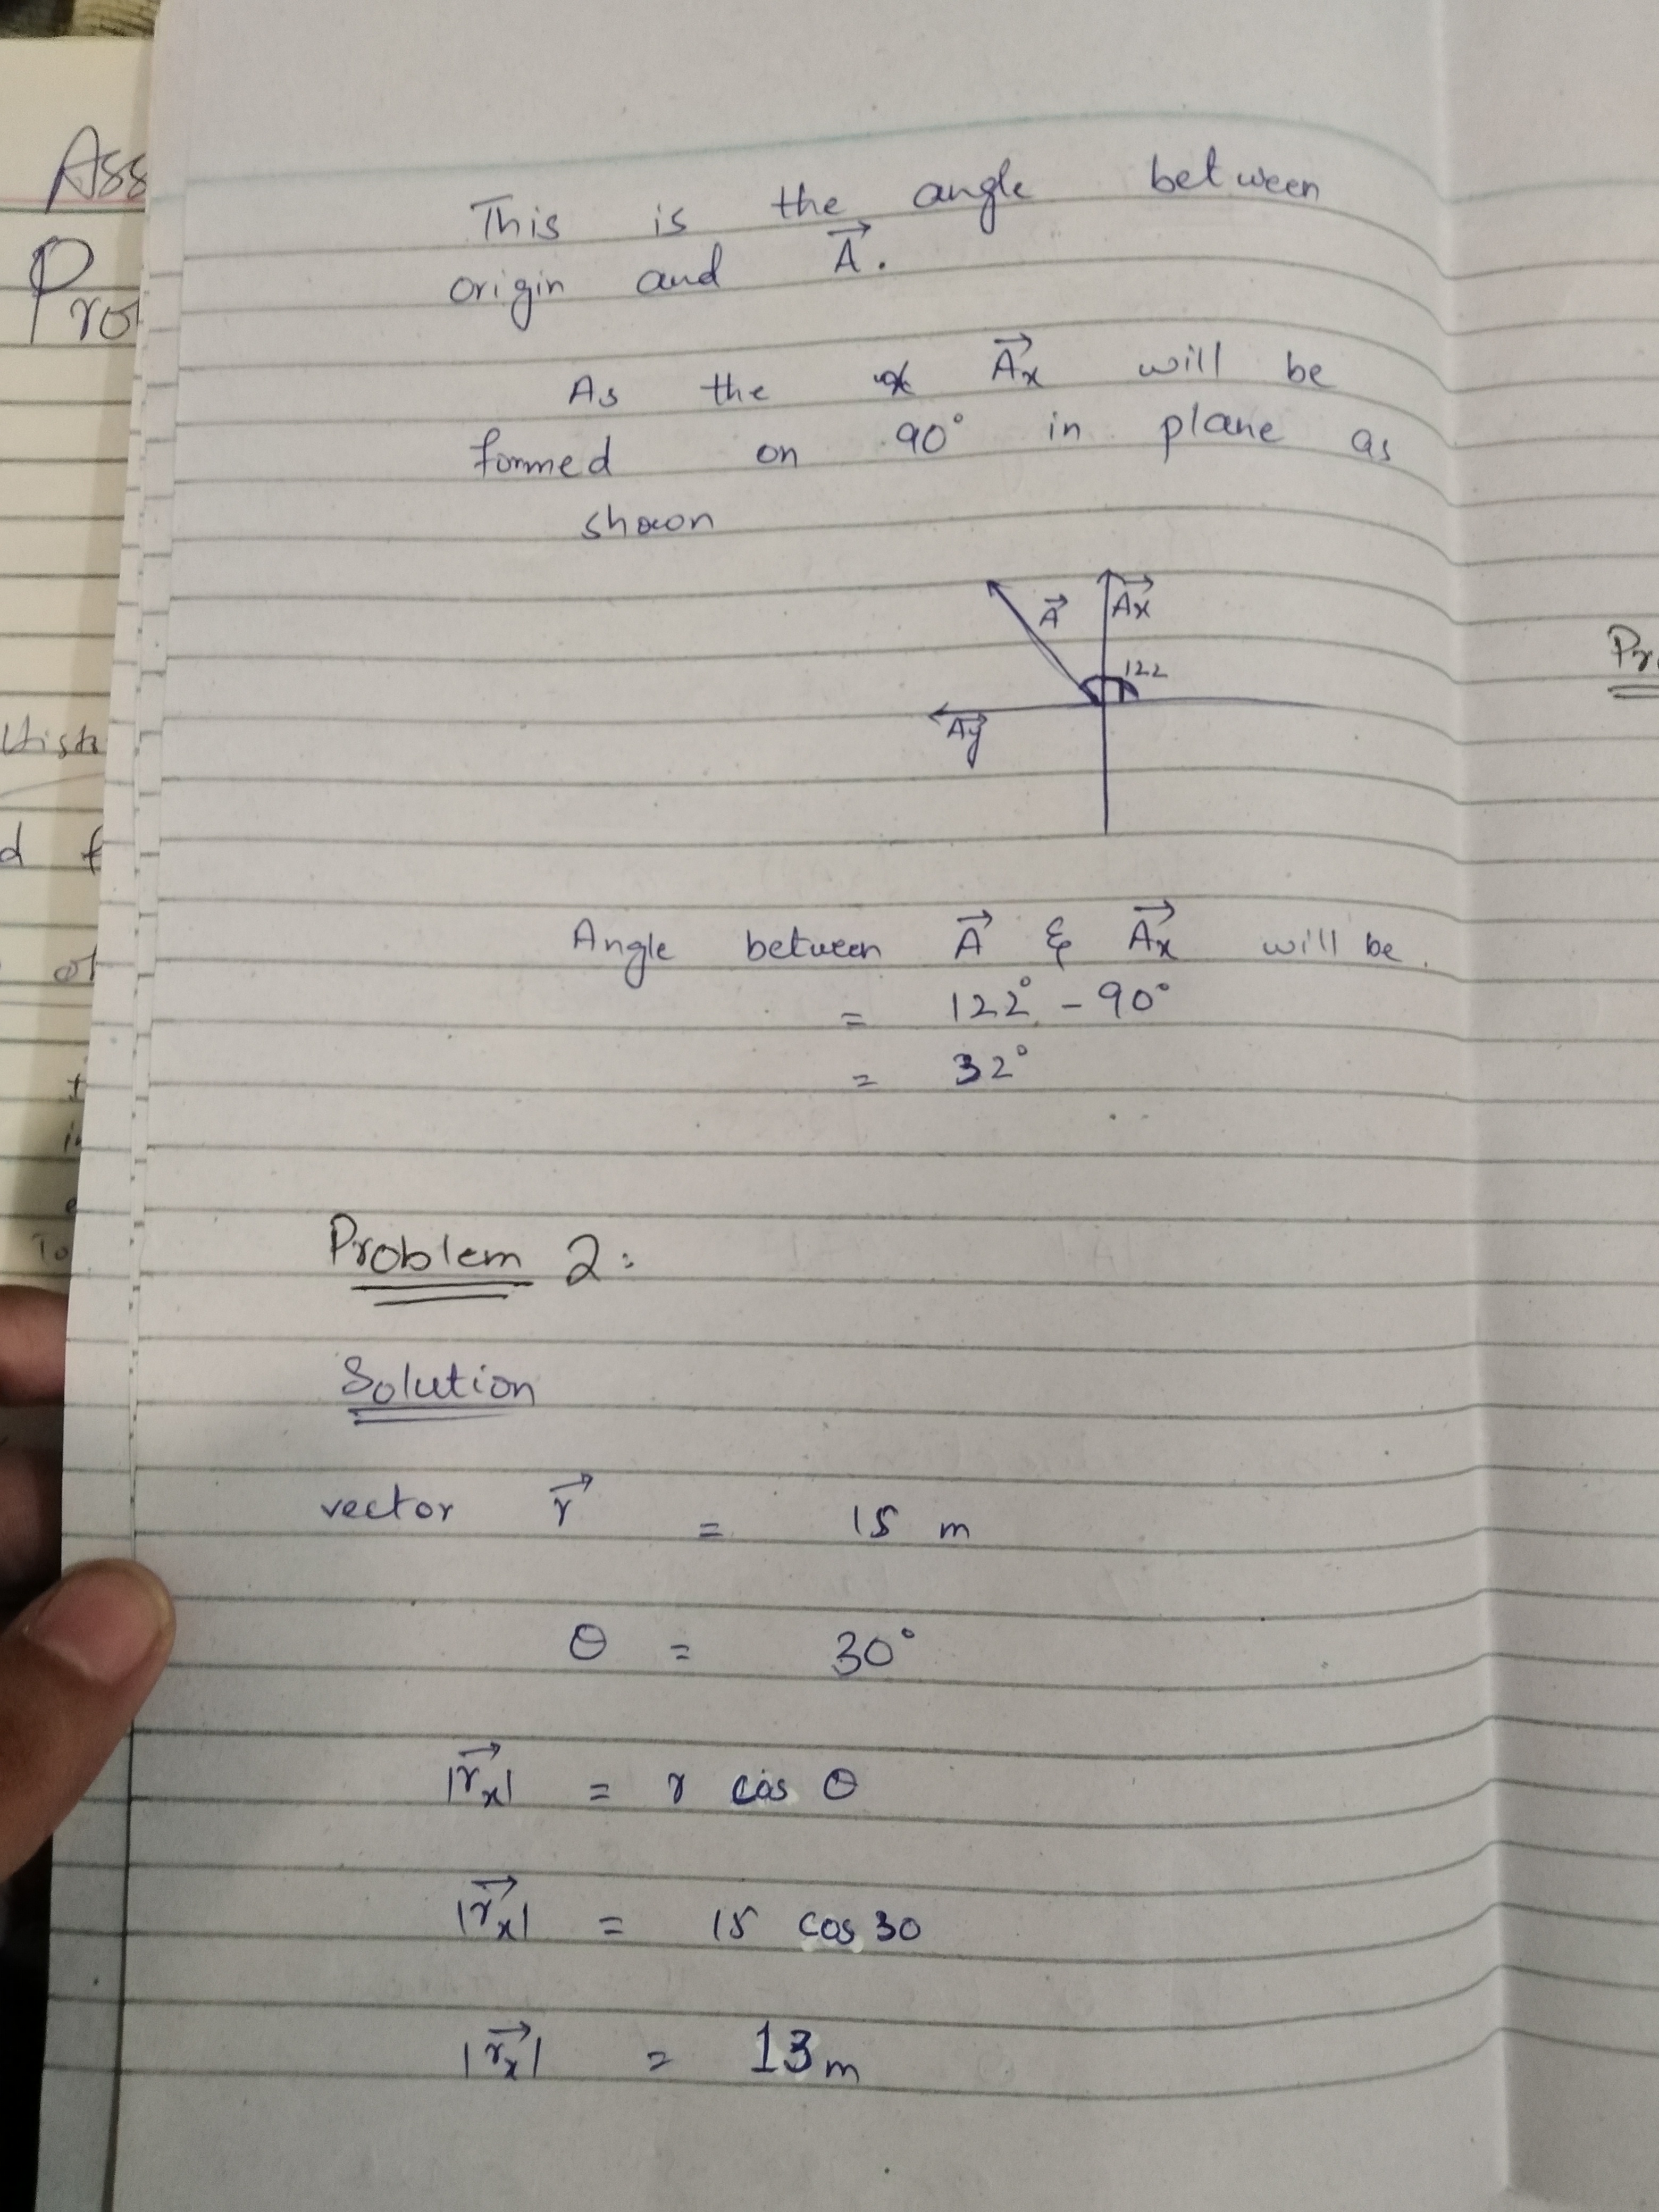 Ass
Pro
This is the angle between
origin and A⃗.
As the A⃗x will be
formed on 90° in plane as
shown
A⃗ A⃗x
122
A⃗y
Pr
d f
of
Angle between A⃗ & A⃗x will be
= 122° - 90°
= 32°
To
Problem 2:
Solution
vector r⃗ = 15 m
θ = 30°
|r⃗x| = r cos θ
|r⃗x| = 15 cos 30
|r⃗x| = 13 m